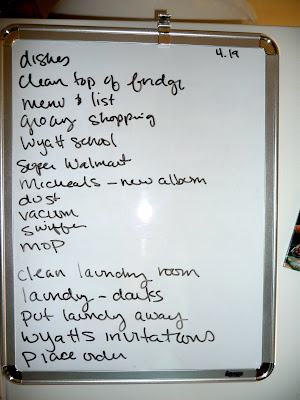 4.19
dishes
clean top of fridge
menu & list
grocery shopping
Wyatt school
Super Walmart
Micheals - new album
dust
vacuum
swiffer
mop
clean laundry room
laundry - darks
put laundry away
Wyatts invitations
place order